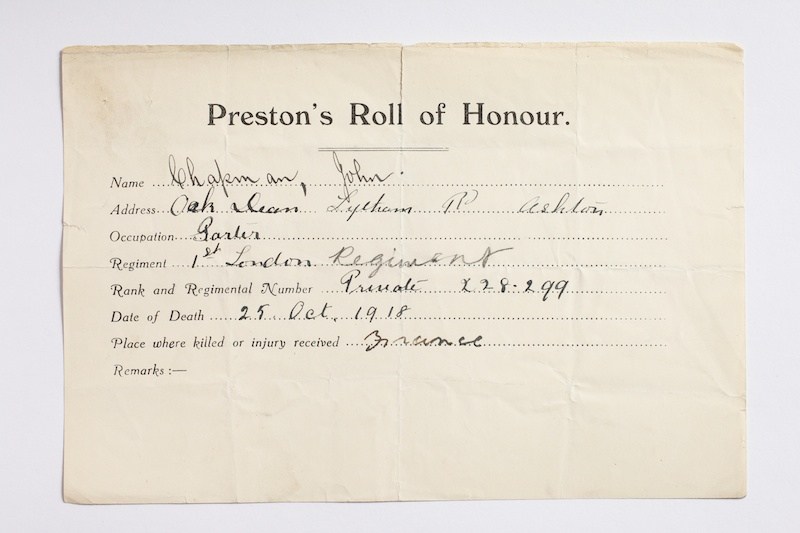 Preston's Roll of Honour.
Name Chapman, John.
Address Oak Dean Lytham Rd Ashton
Occupation Porter
Regiment 1st London Regiment
Rank and Regimental Number Private 228.299
Date of Death 25 Oct. 1918
Place where killed or injury received France
Remarks :—